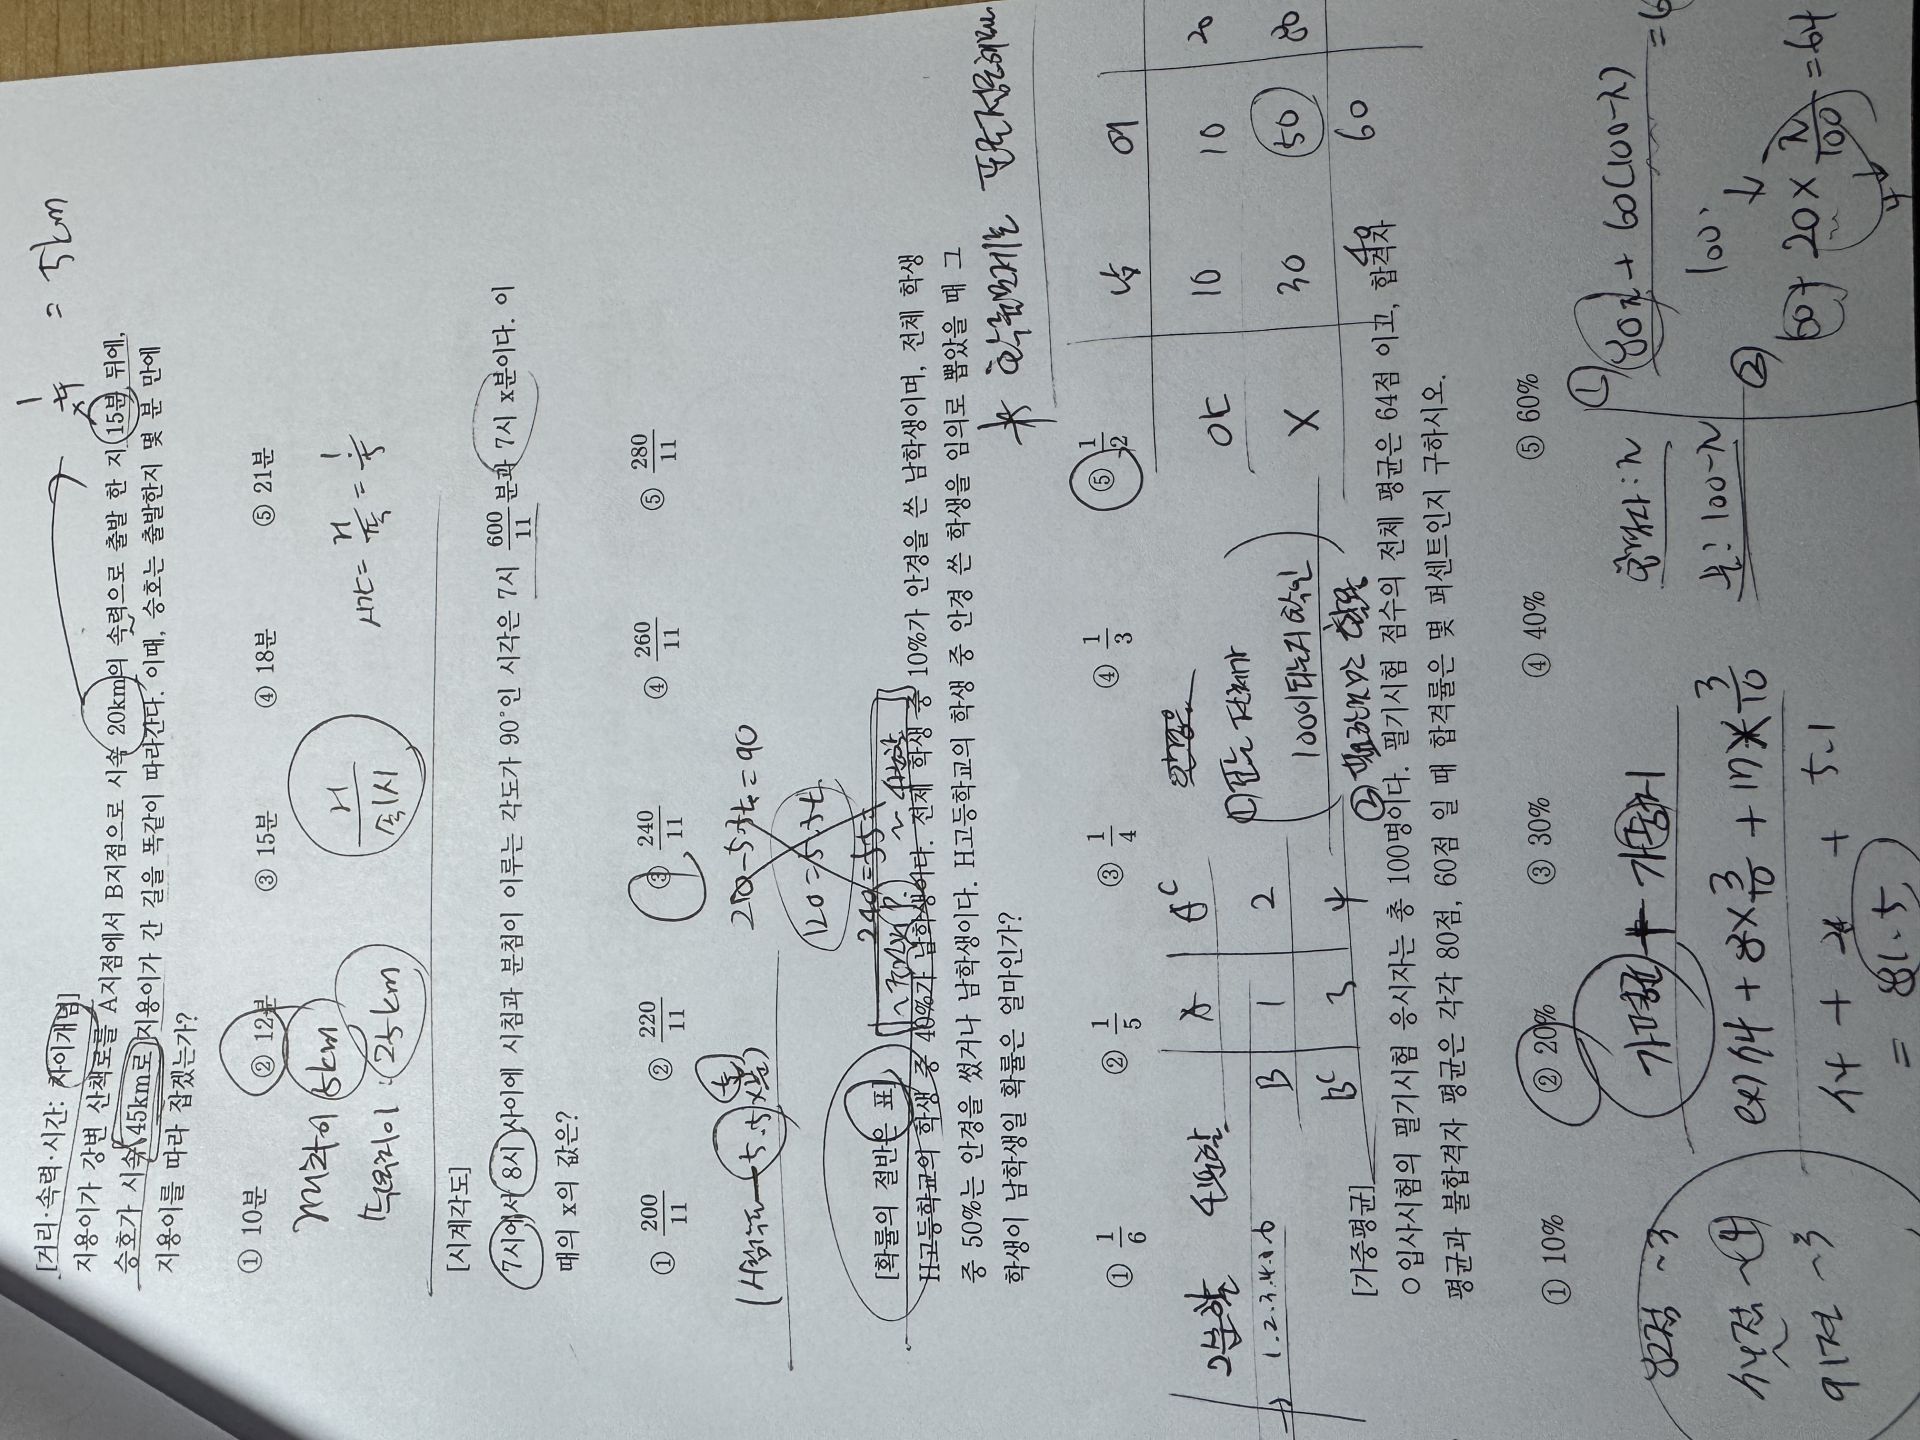 = 5km
[거리·속력·시간: 차이개념]
지용이가 강변 산책로를 A지점에서 B지점으로 시속 20km의 속력으로 출발 한 지 15분 뒤에,
승호가 시속 45km로 지용이가 간 길을 똑같이 따라간다. 이때, 승호는 출발한지 몇 분 만에
지용이를 따라 잡겠는가?
① 10분 ② 12분 ③ 15분 ④ 18분 ⑤ 21분
5km
25km
[시계각도]
7시에서 8시 사이에 시침과 분침이 이루는 각도가 90°인 시각은 7시 600/11 분과 7시 x분이다. 이
때의 x의 값은?
① 200/11 ② 220/11 ③ 240/11 ④ 260/11 ⑤ 280/11
[확률의 절반은 표]
H고등학교의 학생 중 40%가 남학생이다. 전체 학생 중 10%가 안경을 쓴 남학생이며, 전체 학생
중 50%는 안경을 썼거나 남학생이다. H고등학교의 학생 중 안경 쓴 학생을 임의로 뽑았을 때 그
학생이 남학생일 확률은 얼마인가?
① 1/6 ② 1/5 ③ 1/4 ④ 1/3 ⑤ 1/2
남 여
안 10 10 20
X 30 50 80
40 60
2분할 4분할
1.2.3.4.5.6
A A^c
B 1 2
B^c 3 4
① 표는 전체가
100이 되는지 확인
[가중평균]
O입사시험의 필기시험 응시자는 총 100명이다. 필기시험 점수의 전체 평균은 64점 이고, 합격자
평균과 불합격자 평균은 각각 80점, 60점 일 때 합격률은 몇 퍼센트인지 구하시오.
① 10% ② 20% ③ 30% ④ 40% ⑤ 60%
합격자: x
불: 100-x
① 80x + 60(100-x)
100
② 60 + 20 × x/100 = 64
82점 ~3
74점 ~4
91점 ~3
ex) 74 + 8×3/10 + 17×3/10
74 + 2.4 + 5.1
= 81.5